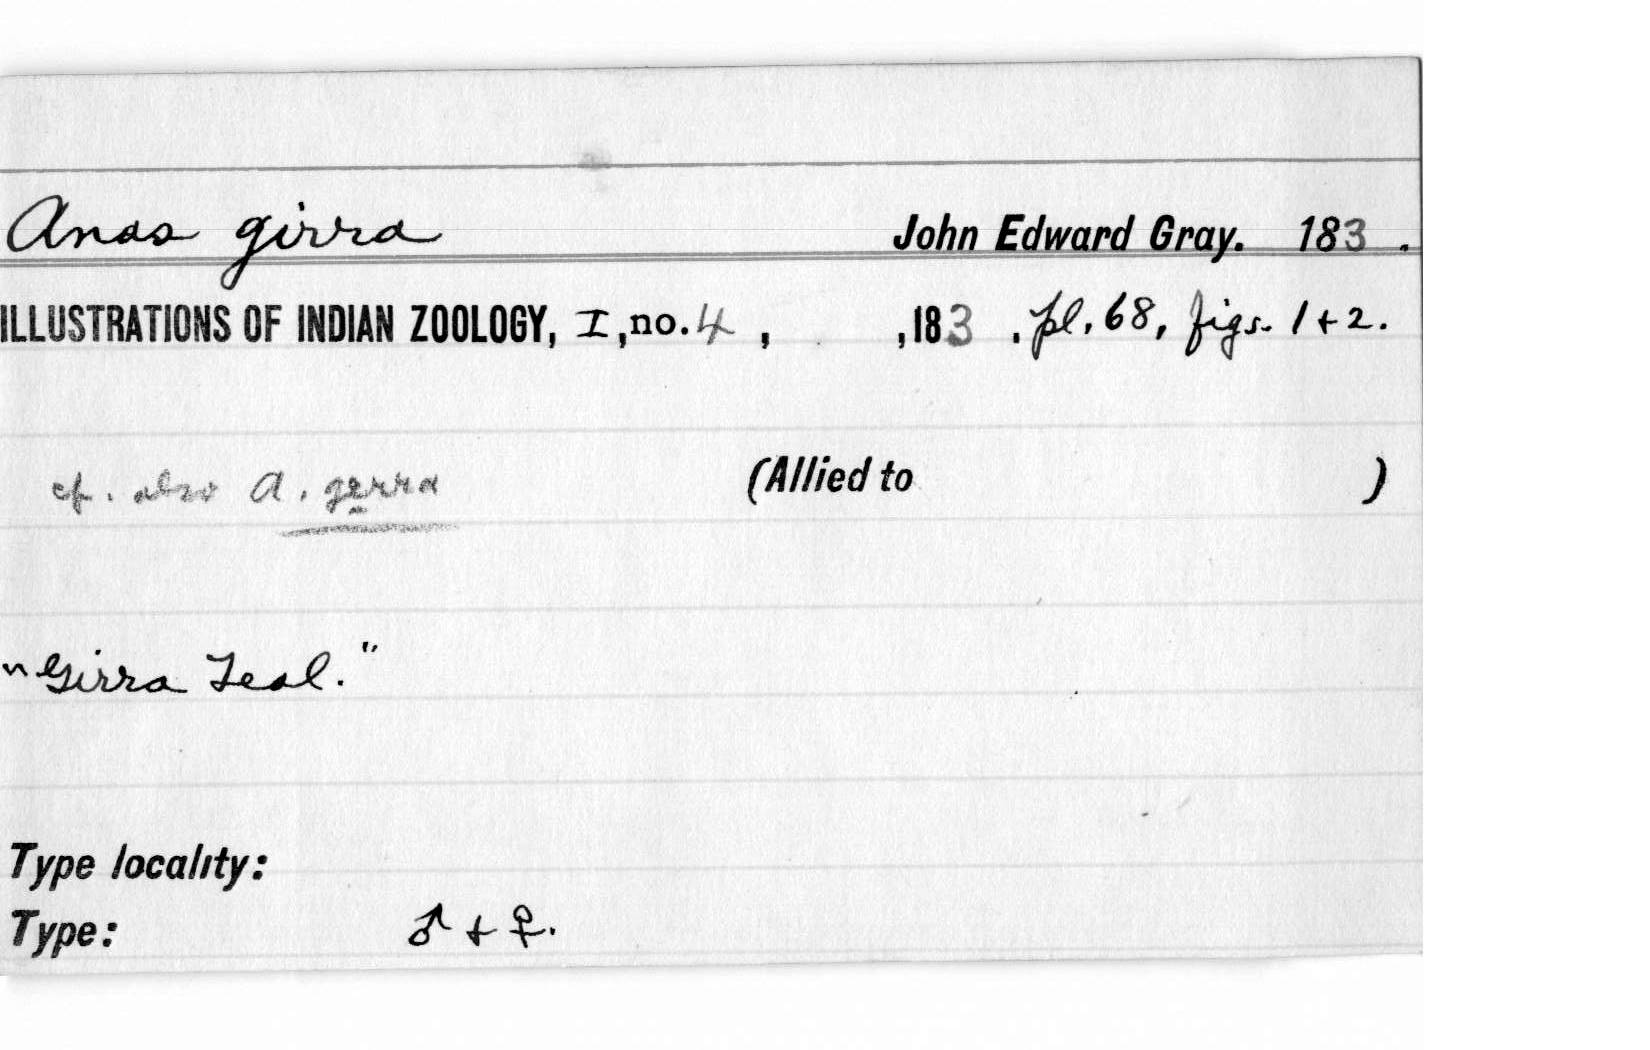 Anas girra John Edward Gray. 183 .
ILLUSTRATIONS OF INDIAN ZOOLOGY, I, no. 4 , ,183 . pl. 68, figs. 1 + 2.
cf. also A. gerra (Allied to )
"Girra Teal."
Type locality:
Type: ♂ + ♀.